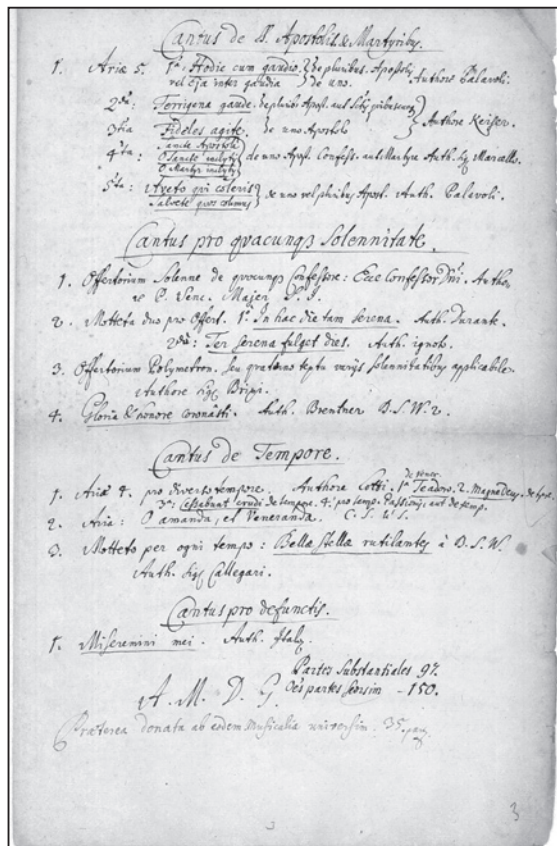 Cantus de SS. Apostolis & Martyribꝫ.
1. Ariæ 5. 1ma Hodie cum gaudio. de pluribus. Apostolis
vel Eja inter gaudia de uno. Authore Palavoli.
2da: Terrigena gaude: de pluribꝫ Apost. aut
3tia Fideles agite. de uno Apostolo Authore Keiser.
4ta: Sancte Apostole
O Sancte inclyte de uno Apost. Confess. aut Martyre Auth. Sig. Marcello.
O Martyr inclyte
5ta: Aveto qui coleris de uno vel pluribus Apost. Auth. Palavoli.
Salvete quos colimus
Cantus pro qvacunqꝫ Solennitate.
1. Offertorium Solenne de qvocunqꝫ Confessore: Ecce Confessor Dni. Autho
re P. Venc. Majer S. J.
2. Motteta duo pro Offert. 1. In hac die tam serena. Auth. Durante.
2dũ: Ter serena fulget dies. Auth. ignoto.
3. Offertorium Polymetron. seu quaterno textu varijs solennitatibus applicabile
Authore Sig. Brixi.
4. Gloria & honore coronasti. Auth. Brentner D. S. W. 2.
Cantus de Tempore.
1. Ariæ 4. pro diverso tempore. Authore Cotti. 1ma Teadoro. de Vener. 2. Magne Deus. de
3. Cessabunt crudi de tempore. 4. pro temp. Passionis, aut de temp.
2. Aria: O amanda, et Veneranda. C. S. W S.
3. Motteto per ogni tempo: Bellæ Stellæ rutilantes à D. S. W.
Auth. Sig. Callegari.
Cantus pro defunctis.
1. Miseremini mei. Auth. Italꝫ.
Partes Substantiales 97.
A. M. D. G. Oẽs partes seorsim - 150.
Præterea donata ab eodem Musicalia universim. 35.
3